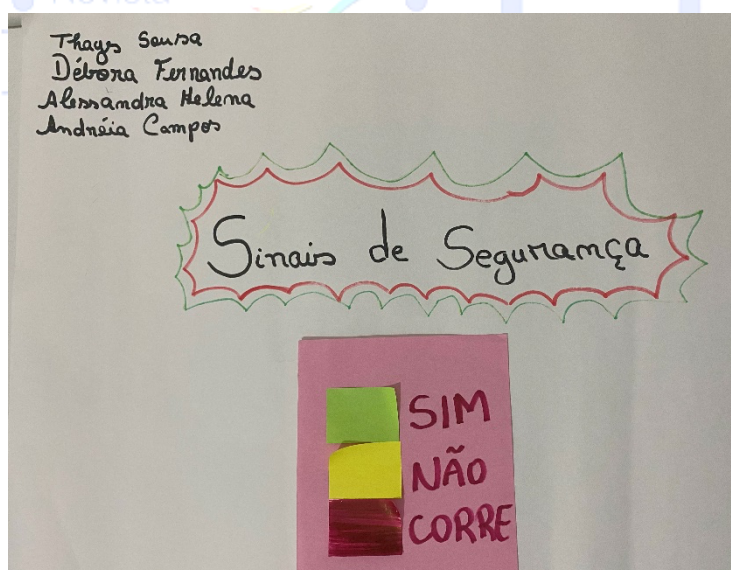 Revista
Thays Sousa
Débora Fernandes
Alessandra Helena
Andréia Campos
Sinais de Segurança
SIM
NÃO
CORRE